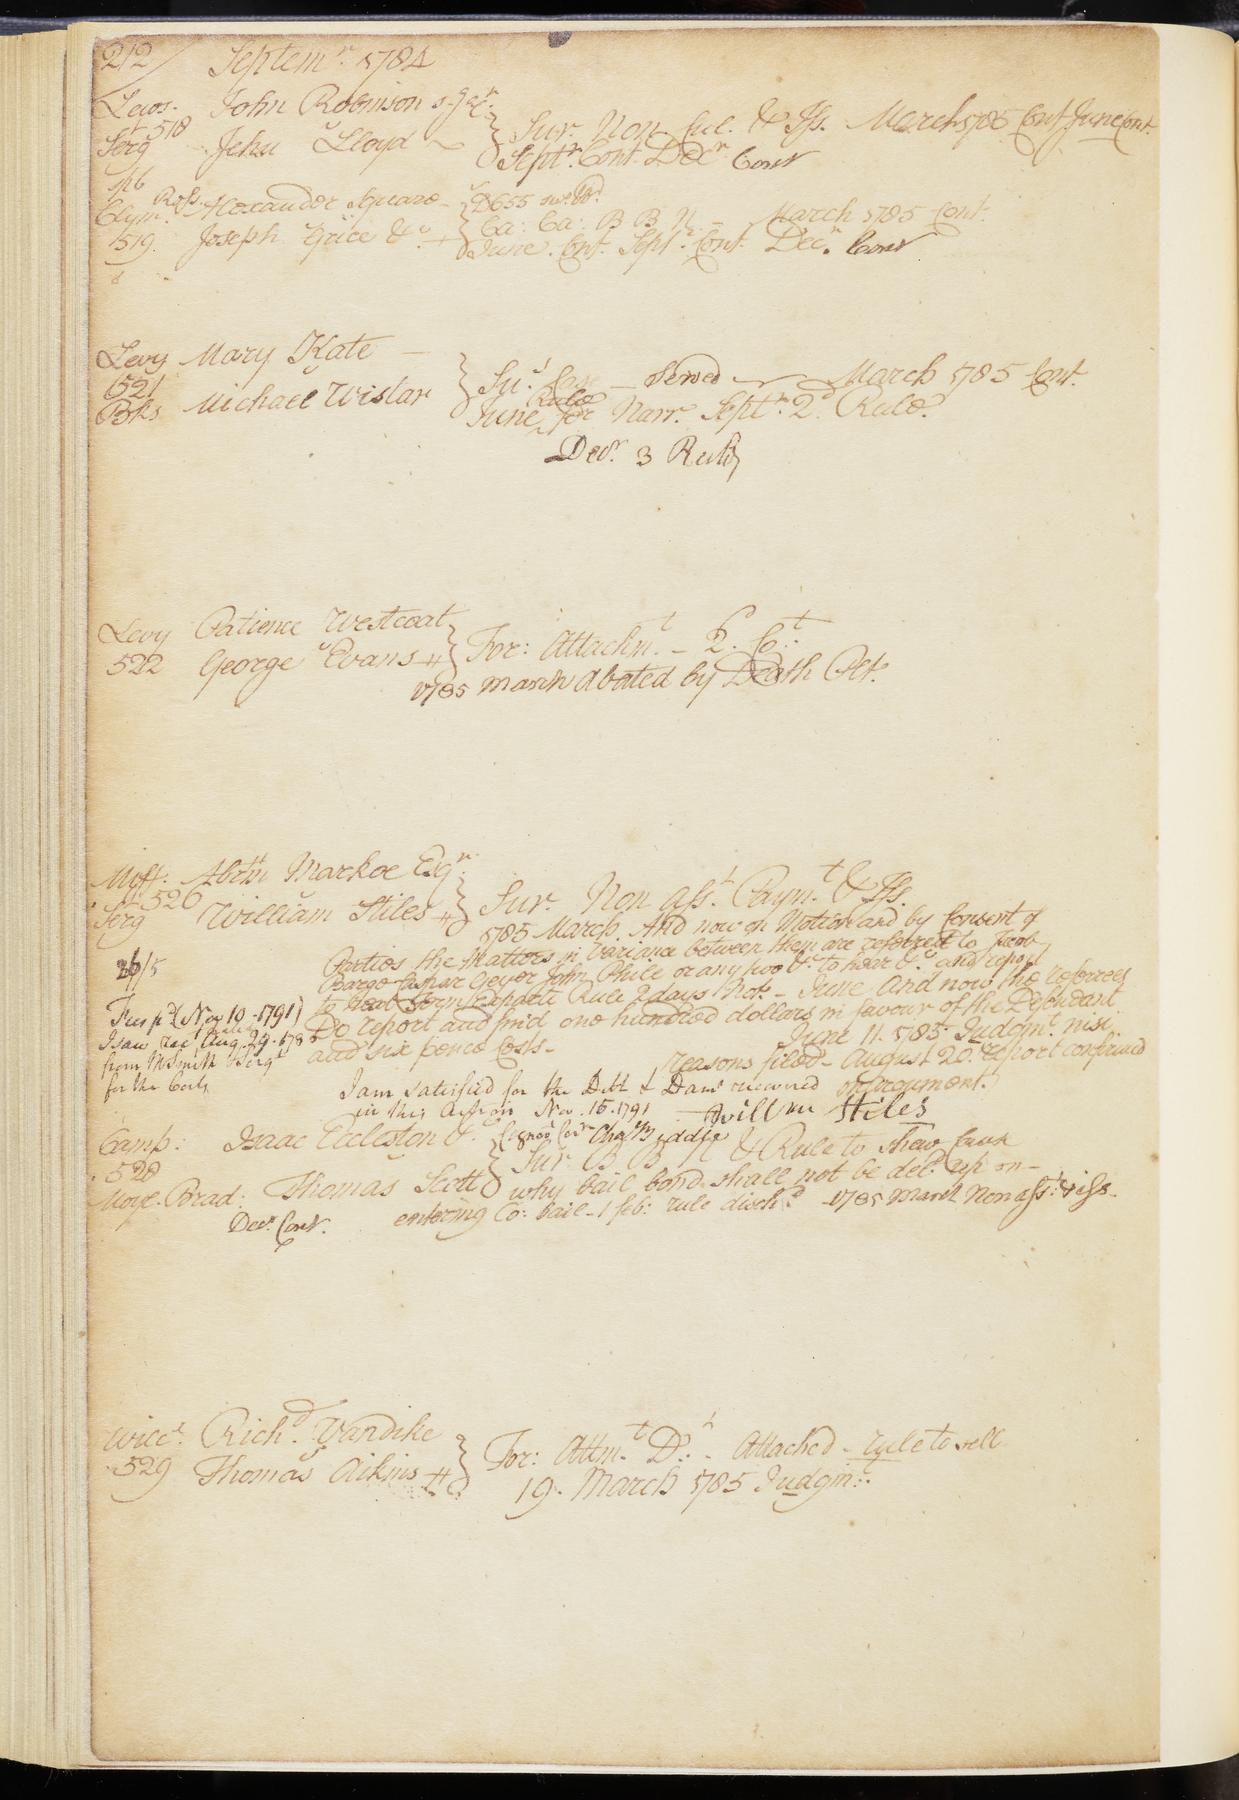 212/ Septemr. 1784
Lews. John Robinson
518
Serg Jehu Lloyd
Sur. Non Cul. & Iss. March 1785 Cont June Cont.
Septr. Cont. Decr Cont
Clym. Ross. Alexander
519. Joseph Grice &c
D655
Ca: Ca: B B N – March 1785 Cont.
June. Cont. Septr. Cont. Decr. Cont
Levy Mary Kate –
521 Michael Wistar
Bks
Su: Case – Served March 1785 Cont.
Rule
June for Narr. Septr. 2d Rule.
Decr. 3 Rule
Levy Patience Westcoat
522 George Evans
For: Attachmt. –
1785 March abated by Death Plt.
Miff: Abrm Markoe Esqr.
526
Serg William Stiles
Sur. Non Asst. Paymt. & Iss.
1785 March. And now on Motion and by Consent of
Parties the Matters in Variance between them are referred to Jacob
Barge Caspar Geyer John Phile or any two &c to hear &c and report
to next Term Exparte Rule 2 days Not. – June And now the referees
Do report and find one hundred dollars in favour of the Defendant
and six pence Costs –
June 11. 1785. Judgmt. nisi
reasons filed – August 20. report confirmed
on argument.
26/5
(Nov 10 – 1791)
from Mr Smith Serg
for the Costs
I am satisfied for the Debt & Dams recovered
in this Action Nov. 15. 1791 – Willm Stiles
Camp: Isaac Eccleston &c
528
Moye. Brad: Thomas Scott
Chas Biddle
Sur B B N & Rule to shew Cause
why bail bond shall not be deld. up on –
entering Co: bail – 1 feb: rule dischd. – 1785 March Non asst. & iss.
Decr Cont.
Wilct. Richd. Vandike
529 Thomas Aikins
For: Attmt. Dt. – Attached – rule to sell
19. March 1785 Judgmt.